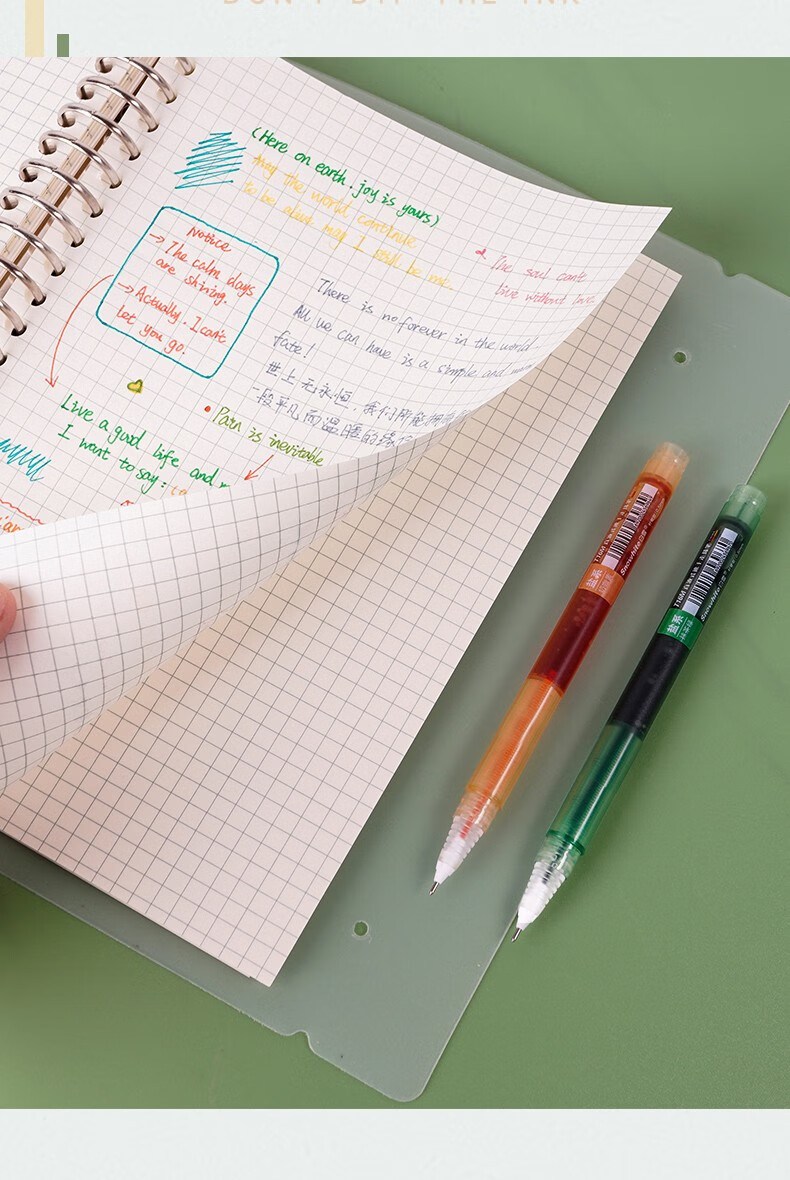 DON'T DIP THE INK
(Here on earth. joy is yours)
May the world continue
to be alive may I still be me.
Notice
→ The calm days
are shining.
→ Actually. I can't
let you go.
The soul can't
live without love.
There is no forever in the world
All we can have is a simple and
fate!
世上无永恒，我们所能拥有的
一段平凡而温暖的缘
Live a good life and
I want to say:
• Pain is inevitable
Snowhite
盐系
Snowhite
盐系